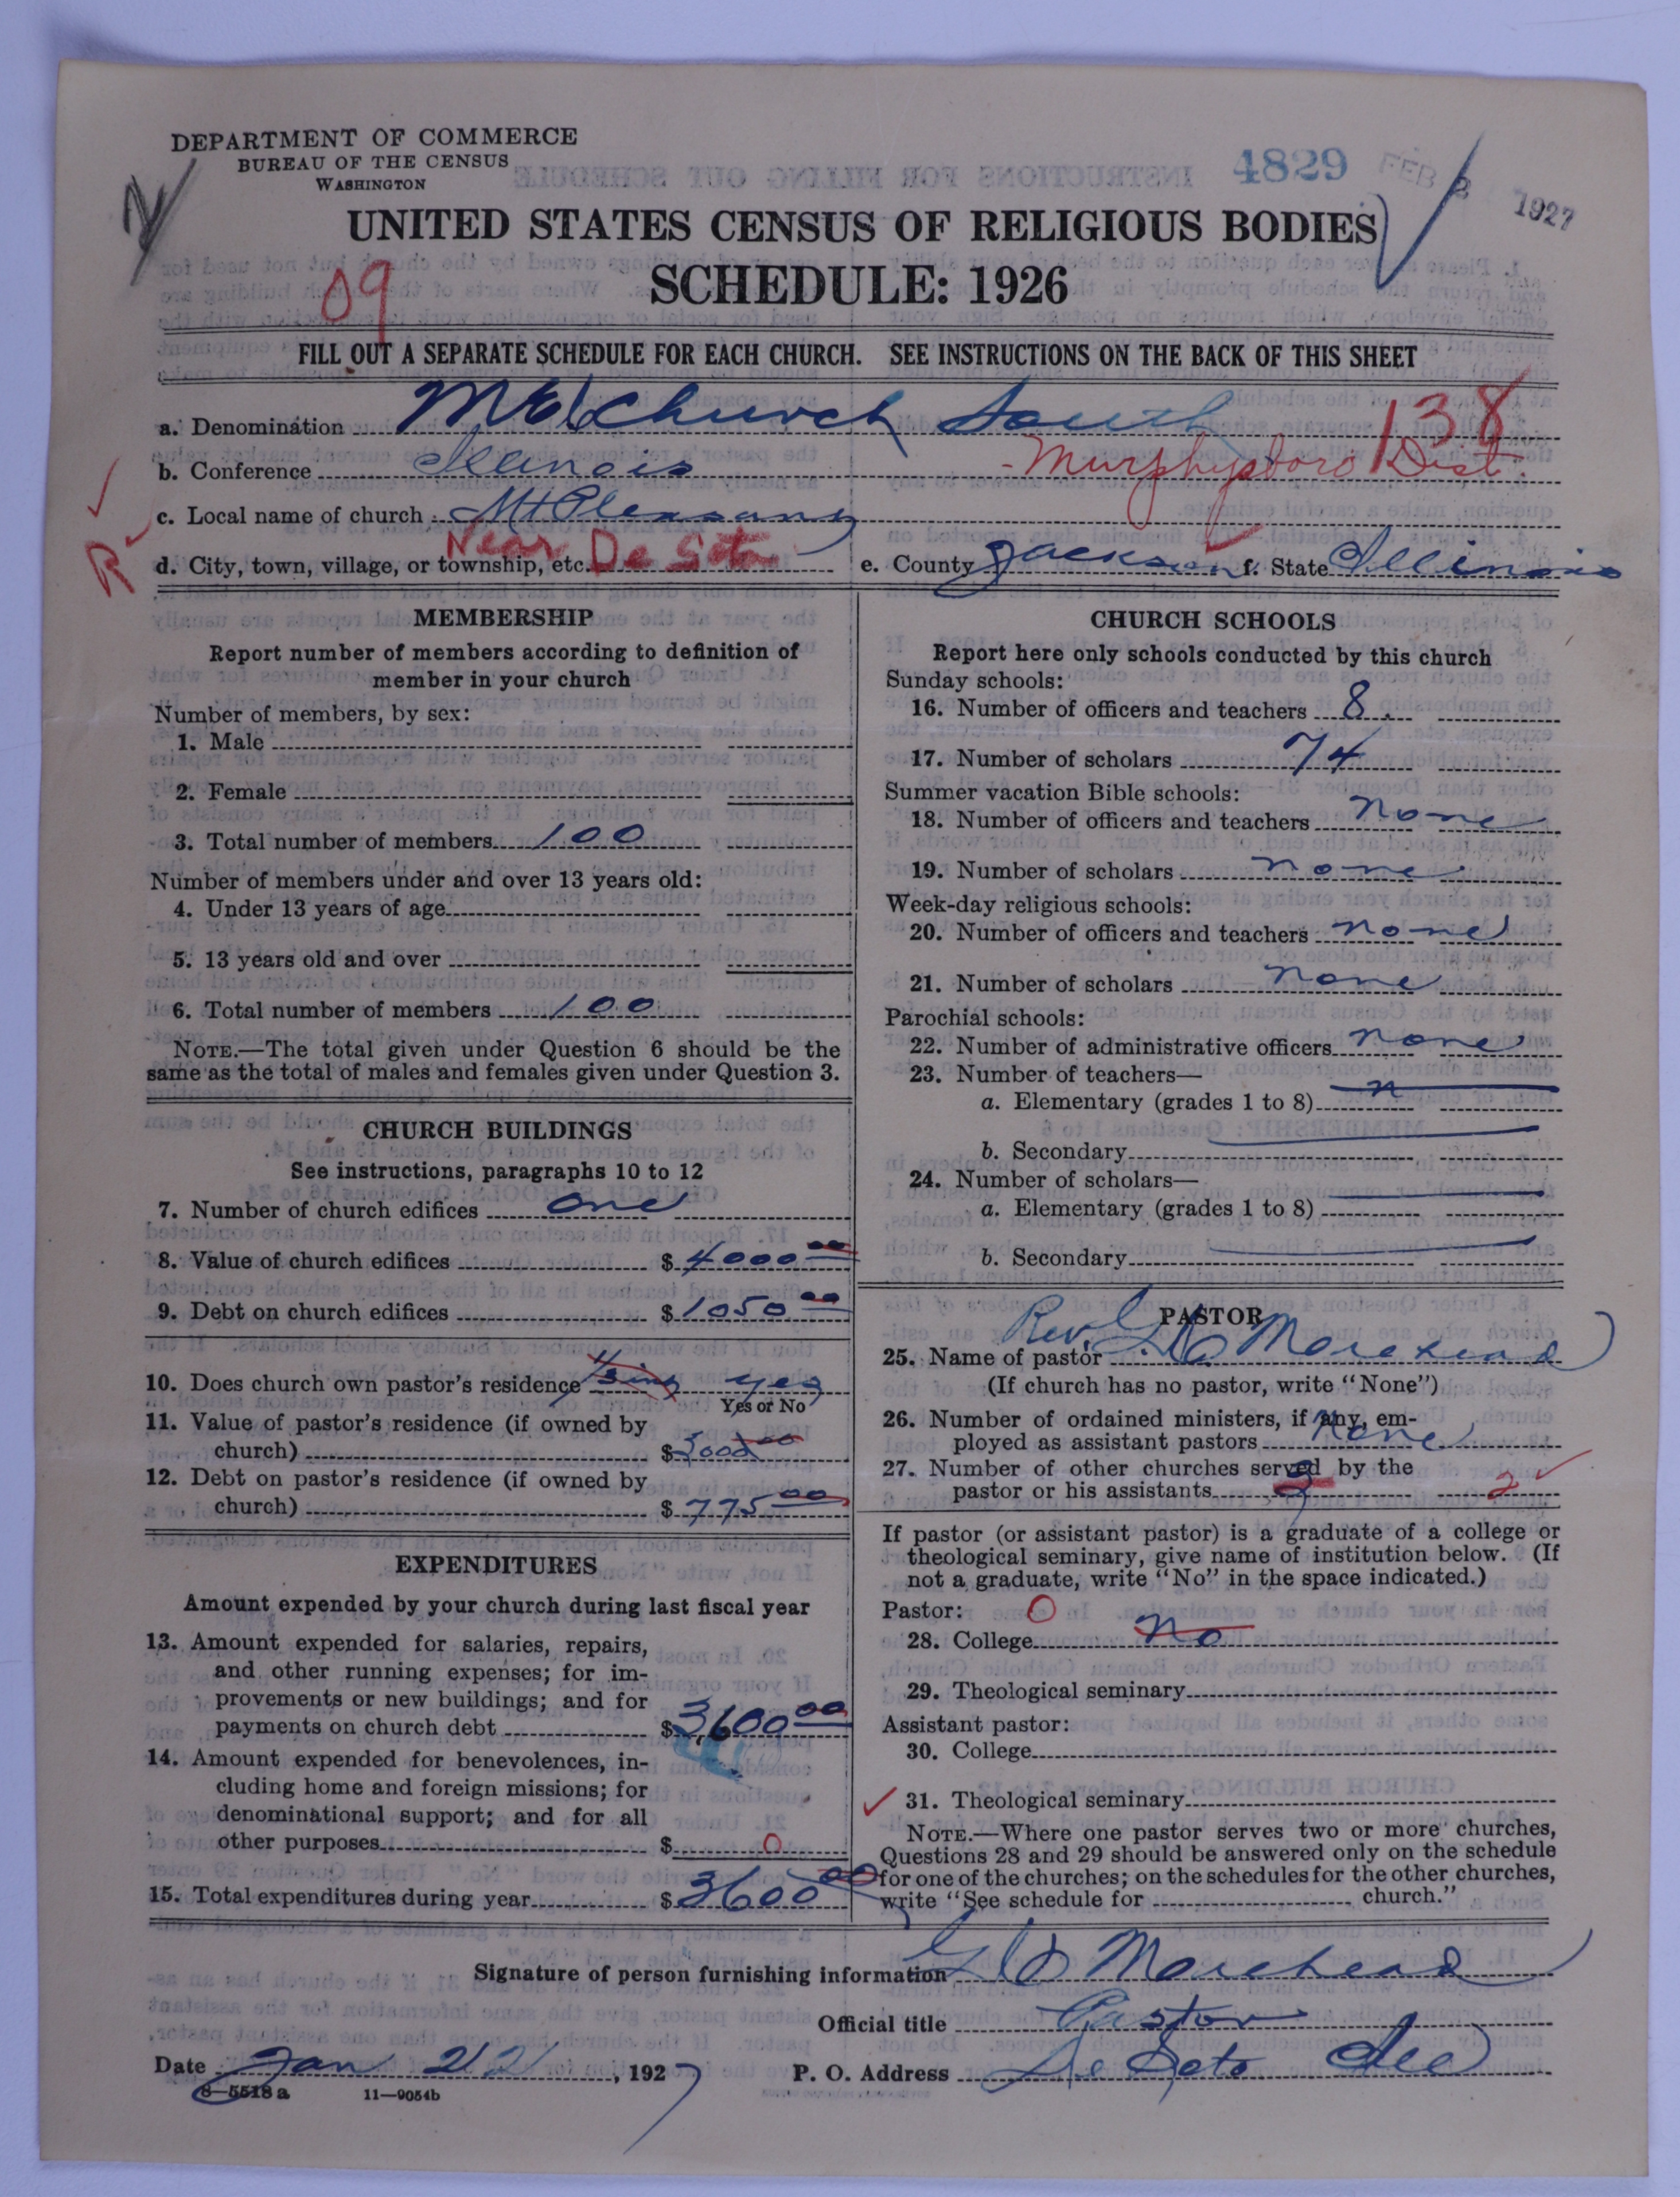 DEPARTMENT OF COMMERCE
BUREAU OF THE CENSUS
WASHINGTON
4829
FEB 2 1927
UNITED STATES CENSUS OF RELIGIOUS BODIES
SCHEDULE: 1926
09
FILL OUT A SEPARATE SCHEDULE FOR EACH CHURCH. SEE INSTRUCTIONS ON THE BACK OF THIS SHEET
a. Denomination ME Church South 138
b. Conference Illinois - Murphysboro Dist.
c. Local name of church Mt Pleasant
R
d. City, town, village, or township, etc. Near De Soto e. County Jackson f. State Illinois
MEMBERSHIP
Report number of members according to definition of
member in your church
Number of members, by sex:
1. Male
2. Female
3. Total number of members 100
Number of members under and over 13 years old:
4. Under 13 years of age
5. 13 years old and over
6. Total number of members 100
NOTE.—The total given under Question 6 should be the
same as the total of males and females given under Question 3.
CHURCH BUILDINGS
See instructions, paragraphs 10 to 12
7. Number of church edifices one
8. Value of church edifices $ 4000 00
9. Debt on church edifices $ 1050 00
10. Does church own pastor's residence yes
Yes or No
11. Value of pastor's residence (if owned by
church) $ 3000 00
12. Debt on pastor's residence (if owned by
church) $ 775 00
EXPENDITURES
Amount expended by your church during last fiscal year
13. Amount expended for salaries, repairs,
and other running expenses; for im-
provements or new buildings; and for
payments on church debt $ 3,600 00
14. Amount expended for benevolences, in-
cluding home and foreign missions; for
denominational support; and for all
other purposes $ 0
15. Total expenditures during year $ 3600 00
CHURCH SCHOOLS
Report here only schools conducted by this church
Sunday schools:
16. Number of officers and teachers 8.
17. Number of scholars 74
Summer vacation Bible schools:
18. Number of officers and teachers none
19. Number of scholars none
Week-day religious schools:
20. Number of officers and teachers none
21. Number of scholars none
Parochial schools:
22. Number of administrative officers none
23. Number of teachers—
a. Elementary (grades 1 to 8) n
b. Secondary
24. Number of scholars—
a. Elementary (grades 1 to 8)
b. Secondary
PASTOR
25. Name of pastor Rev. G. D. Morehead
(If church has no pastor, write "None")
26. Number of ordained ministers, if any, em-
ployed as assistant pastors None
27. Number of other churches served by the
pastor or his assistants 3 2
If pastor (or assistant pastor) is a graduate of a college or
theological seminary, give name of institution below. (If
not a graduate, write "No" in the space indicated.)
Pastor: 0
28. College No
29. Theological seminary
Assistant pastor:
30. College
31. Theological seminary
NOTE.—Where one pastor serves two or more churches,
Questions 28 and 29 should be answered only on the schedule
for one of the churches; on the schedules for the other churches,
write "See schedule for church."
Signature of person furnishing information G D Morehead
Official title Pastor
Date Jan 21, 1927 P. O. Address De Soto Ill
8—5518 a 11—9054b